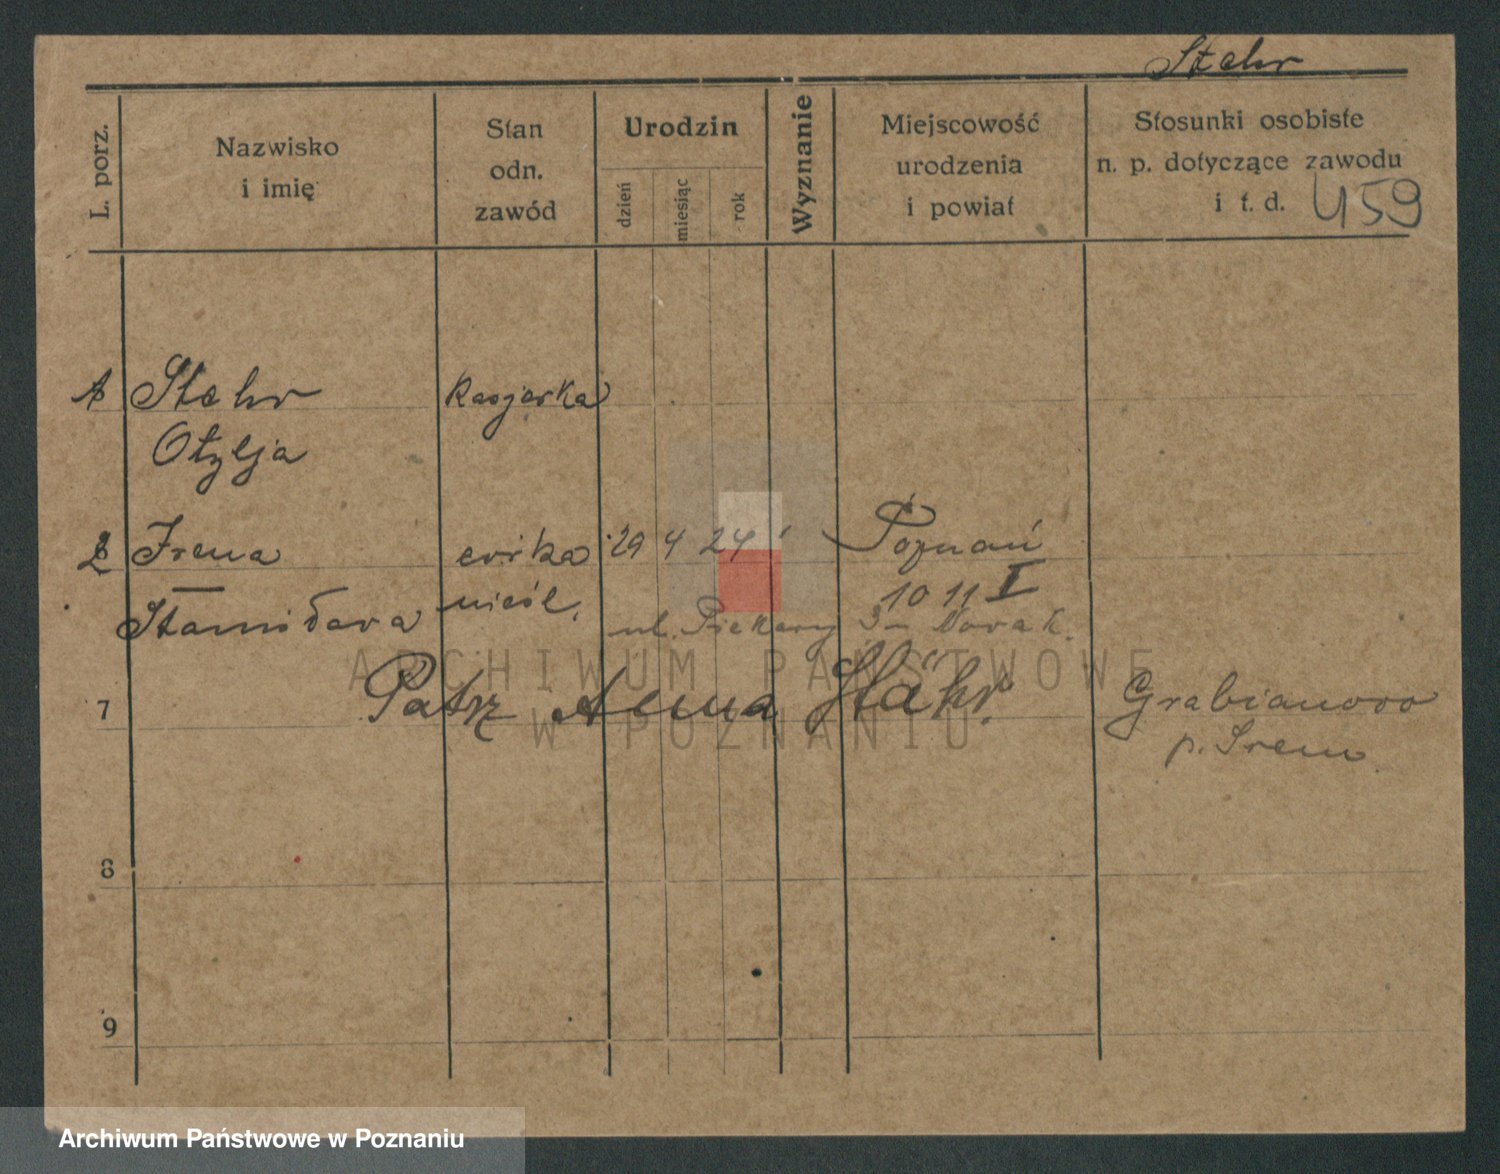 Stehr
L. porz.
Nazwisko
i imię
Stan
odn.
zawód
Urodzin
dzień
miesiąc
rok
Wyznanie
Miejscowość
urodzenia
i powiat
Stosunki osobiste
n. p. dotyczące zawodu
i t. d. 459
1 Stehr kasjerka
Otylja
2 Irena córka 29 4 24 Poznań
nieśl. 10 11 I
Stanisława ul. Piekary 3 Novak.
7 Patrz Anna Stähr. Grabianowo
p. Śrem
8
9
ARCHIWUM PAŃSTWOWE
W POZNANIU
Archiwum Państwowe w Poznaniu